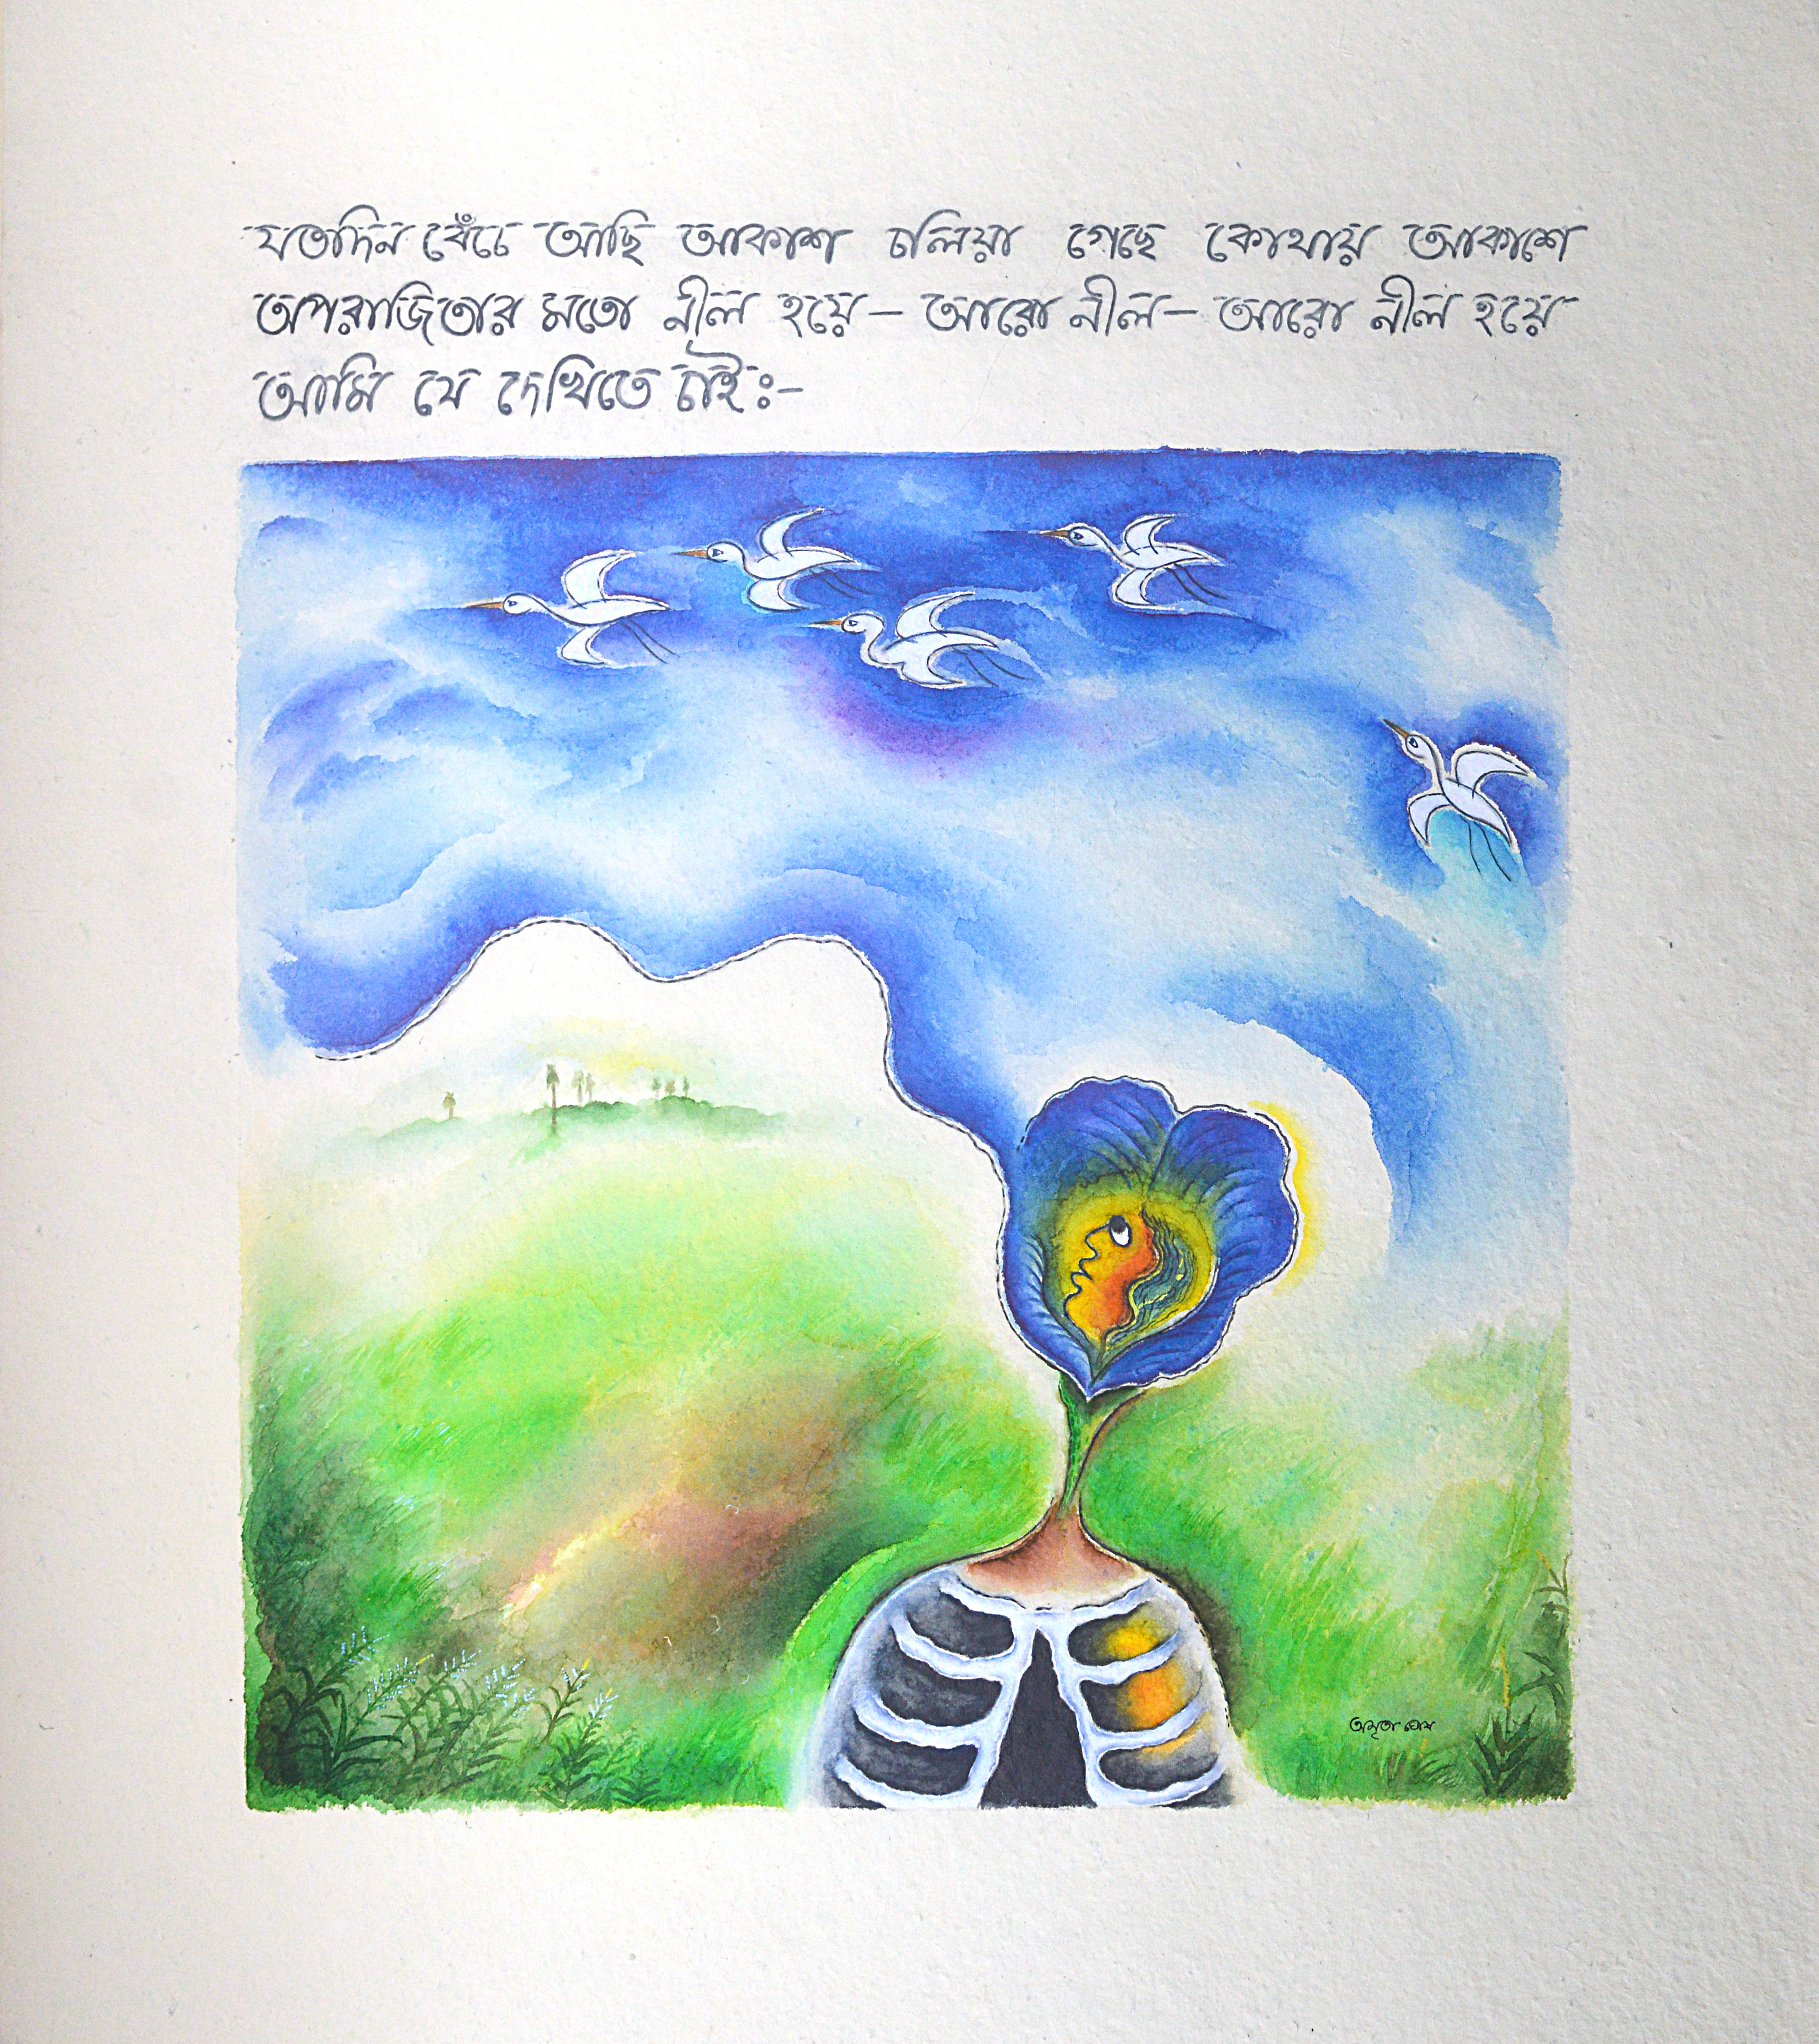 যতদিন বেঁচে আছি আকাশ চলিয়া গেছে কোথায় আকাশে
অপরাজিতার মতো নীল হয়ে– আরো নীল– আরো নীল হয়ে
আমি যে দেখিতে চাই:–
অমৃতা ঘোষ